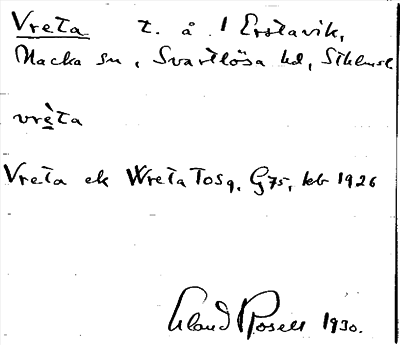 Vreta t. å l Erstavik,
Nacka sn, Svartlösa hd, Sthlmsl
vrèta
Vreta ek Wreta Tosq, G75, kb 1926
Claud Rosell 1930.